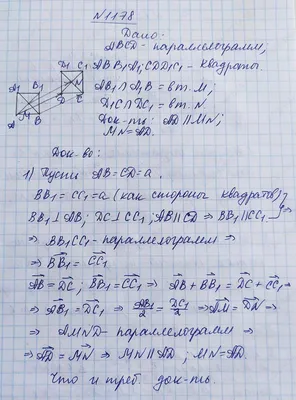 N1178
Дано:
ABCD - параллелограмм;
ABB₁A₁; CDD₁C₁ - квадраты
AB₁∩A₁B = в т. M;
D₁C∩DC₁ = в т. N.
Док-ть: AD ∥ MN;
MN = AD.
A₁ B₁ D₁ C₁
M N
A B D C
Док-во:
1) Пусть AB = CD = a.
BB₁ = CC₁ = a (как стороны квадратов);
BB₁ ⊥ AB; DC ⊥ CC₁; AB ∥ CD ⇒ BB₁ ∥ CC₁
⇒ BB₁CC₁ - параллелограмм ⇒
⇒ BB₁ = CC₁
AB = DC; BB₁ = CC₁ ⇒ AB + BB₁ = DC + CC₁ ⇒
⇒ AB₁ = DC₁ ⇒ AB₁/2 = DC₁/2 ⇒ AM = DN ⇒
⇒ AMND - параллелограмм ⇒
⇒ AD = MN ⇒ MN ∥ AD; MN = AD.
Что и треб. док-ть.